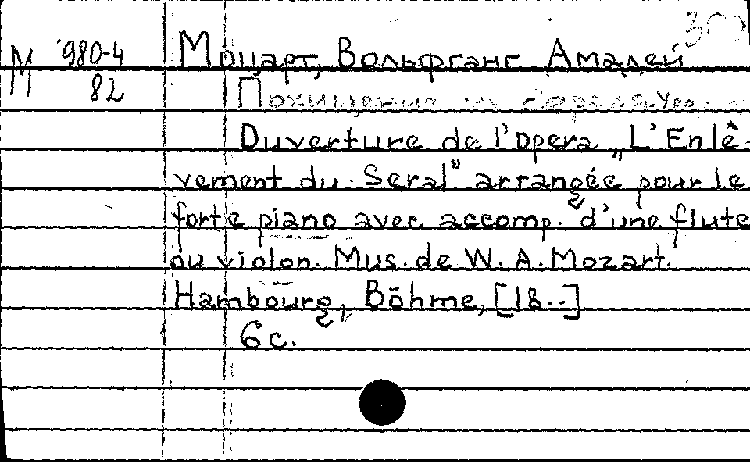 М 980-4
82
Моцарт, Вольфганг Амадей
Похищение из
Ouverture de l'opera „L'Enlê-
vement du Seral" arrangée pour le
forte piano avec accomp. d'une flute
ou violon. Mus. de W. A. Mozart.
Hambourg, Böhme, [18..]
6 с.